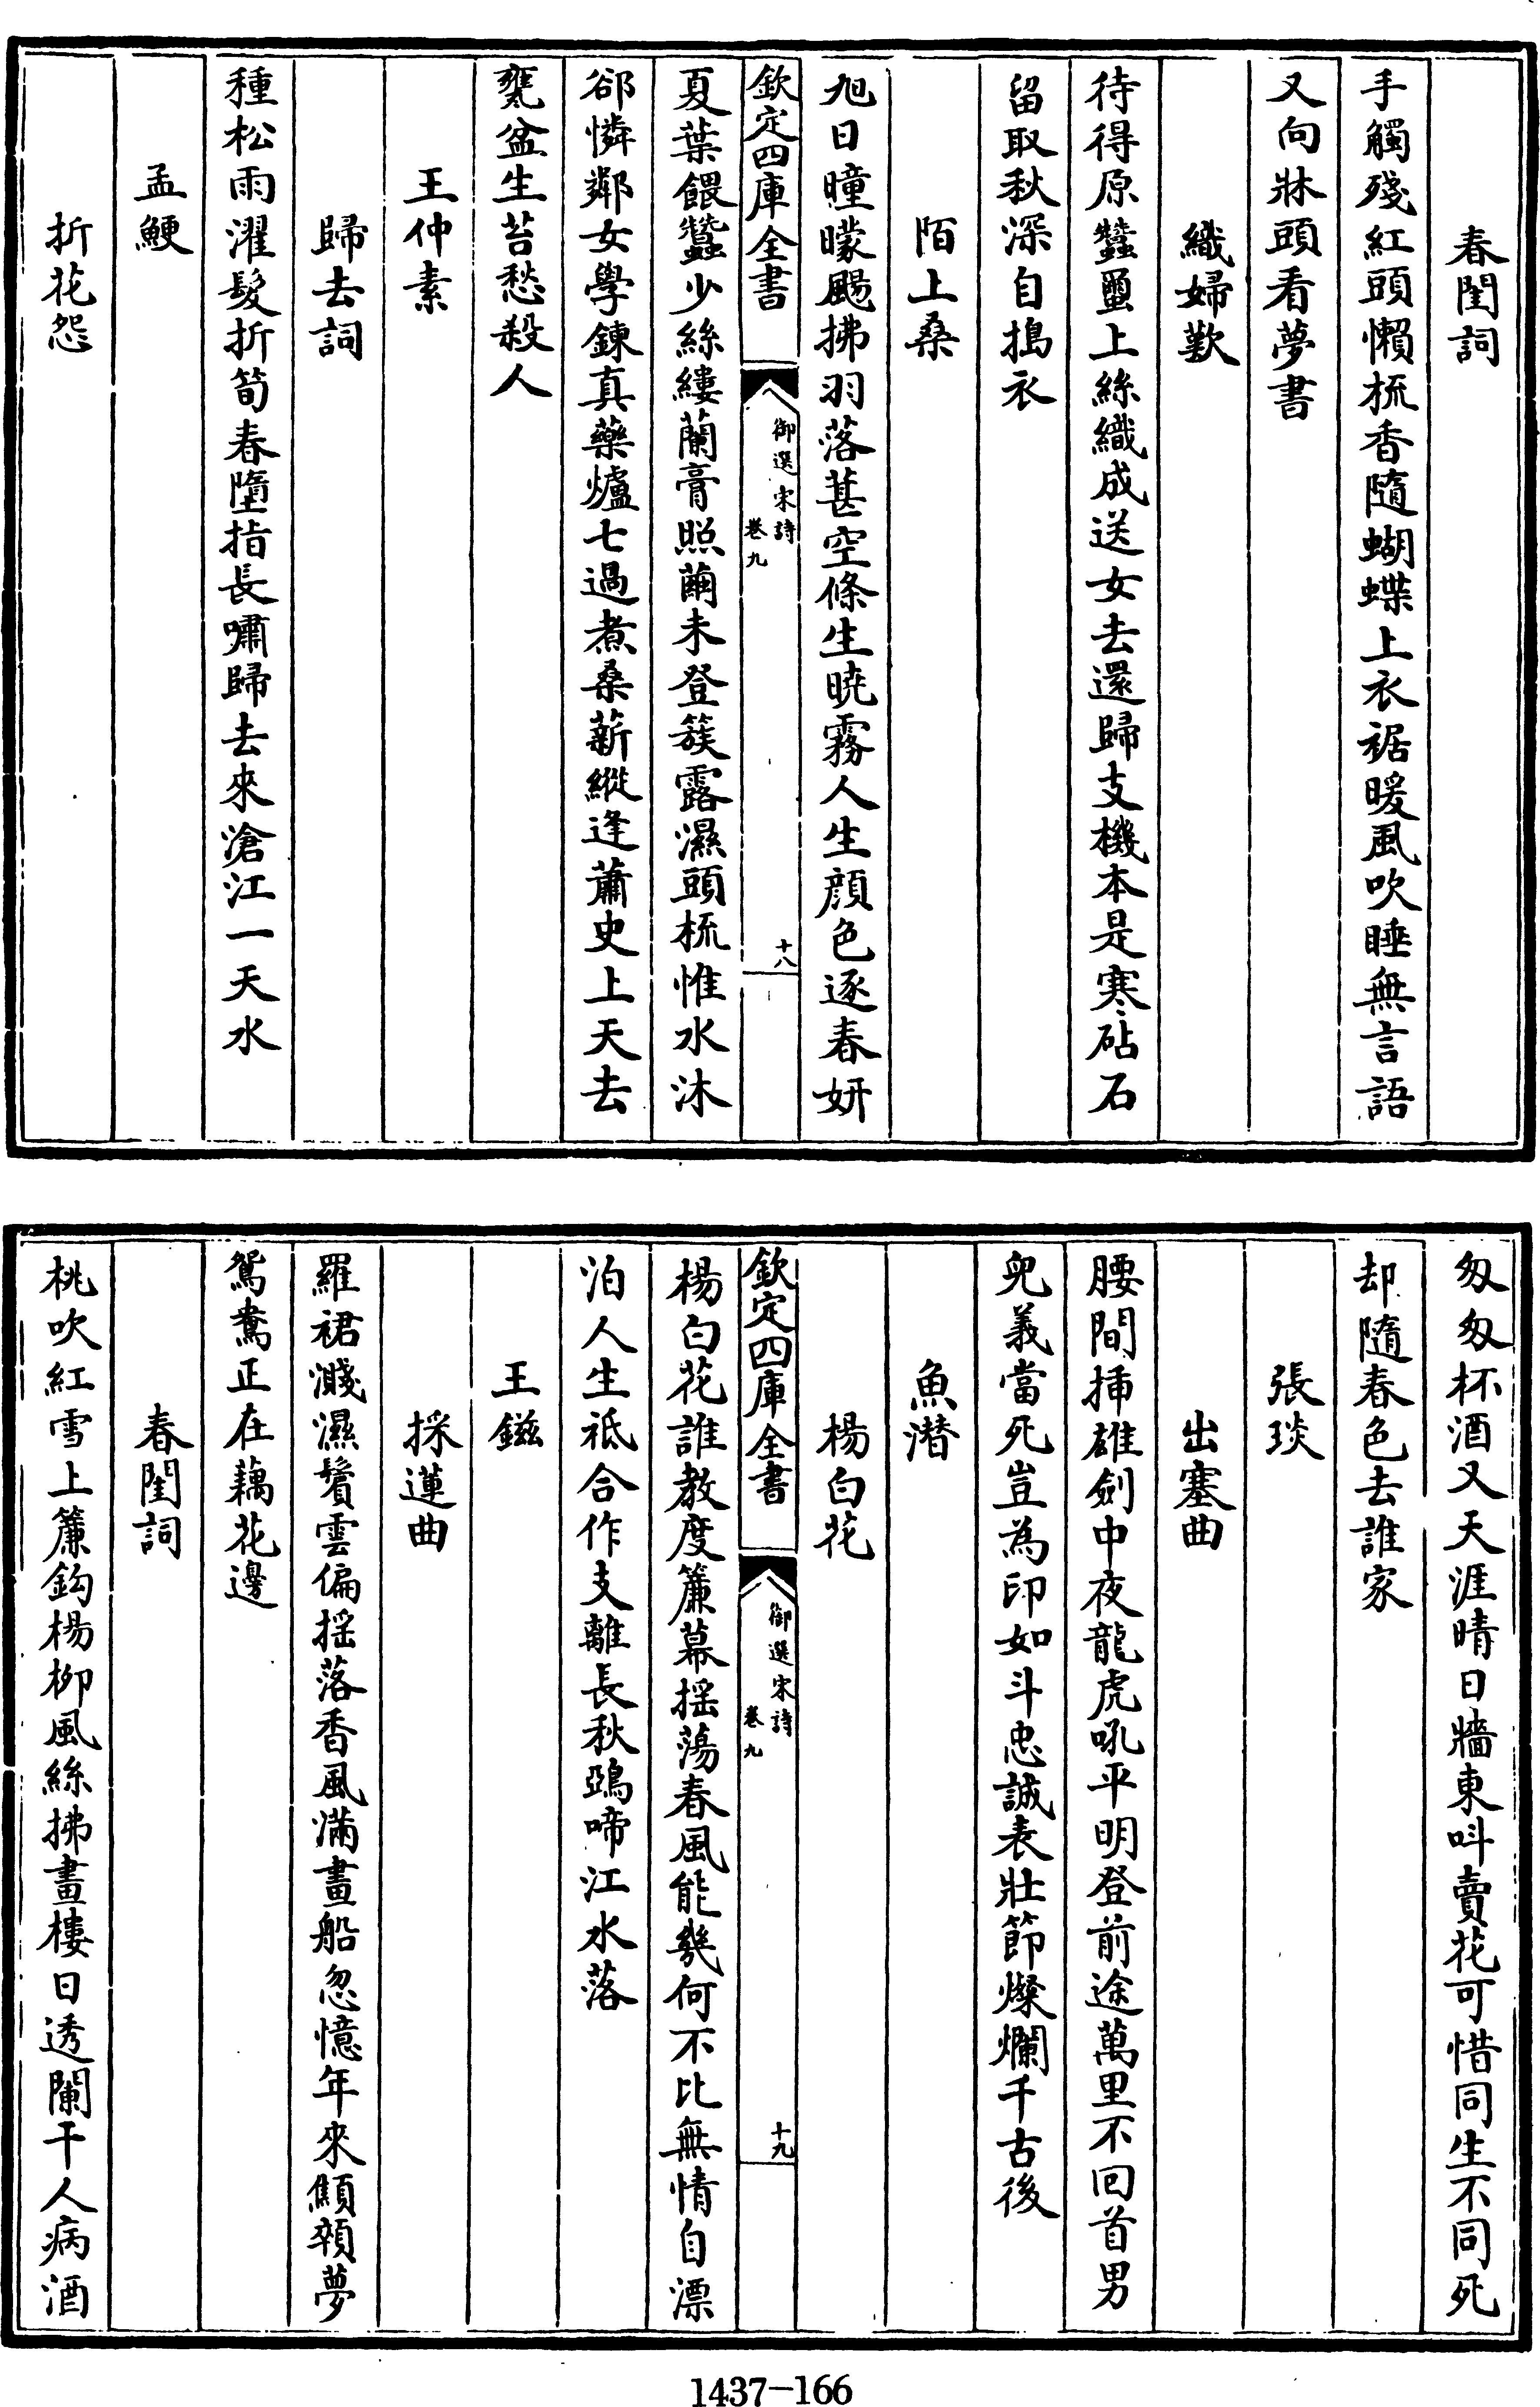 春閨詞
手觸殘紅頭懶梳香隨蝴蝶上衣裾暖風吹睡無言語
又向牀頭看夢書
織婦歎
待得原蠶蠒上絲織成送女去還歸支機本是寒砧石
留取秋深自搗衣
陌上桑
旭日曈曚颺拂羽落葚空條生曉霧人生顔色逐春妍
欽定四庫全書
御選宋詩
卷九
十八
夏葉餵蠶少絲縷蘭膏照繭未登簇露濕頭梳惟水沐
郤憐鄰女學鍊真藥爐七過煮桑薪縱逢蕭史上天去
甕盆生苔愁殺人
王仲素
歸去詞
種松雨濯髮折筍春墮指長嘯歸去來滄江一天水
孟鯁
折花怨
匆匆杯酒又天涯晴日牆東呌賣花可惜同生不同死
却隨春色去誰家
張琰
出塞曲
腰間插雄劍中夜龍虎吼平明登前途萬里不回首男
兒義當死豈為印如斗忠誠表壯節燦爛千古後
魚潛
楊白花
楊白花誰教度簾幕摇蕩春風能幾何不比無情自漂
欽定四庫全書
御選宋詩
卷九
十九
泊人生祇合作支離長秋鵶啼江水落
王鎡
採蓮曲
羅裙濺濕鬢雲偏摇落香風滿畫船忽憶年來顦顇夢
鴛鴦正在藕花邊
春閨詞
桃吹紅雪上簾鈎楊柳風絲拂畫樓日透闌干人病酒
1437-166